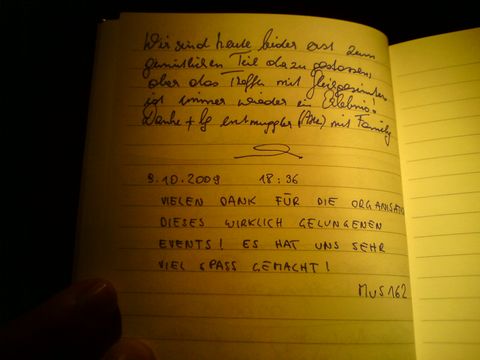 Wir sind heute leider erst zum
gemütlichen Teil dazu gestossen,
aber das Treffen mit Gleichgesinnten
ist immer wieder ein Erlebnis!
Danke + lg entmuggler (Alle) mit Family
9.10.2009 18:36
VIELEN DANK FÜR DIE ORGANISATIO
DIESES WIRKLICH GELUNGENEN
EVENTS! ES HAT UNS SEHR
VIEL SPASS GEMACHT!
MUS162